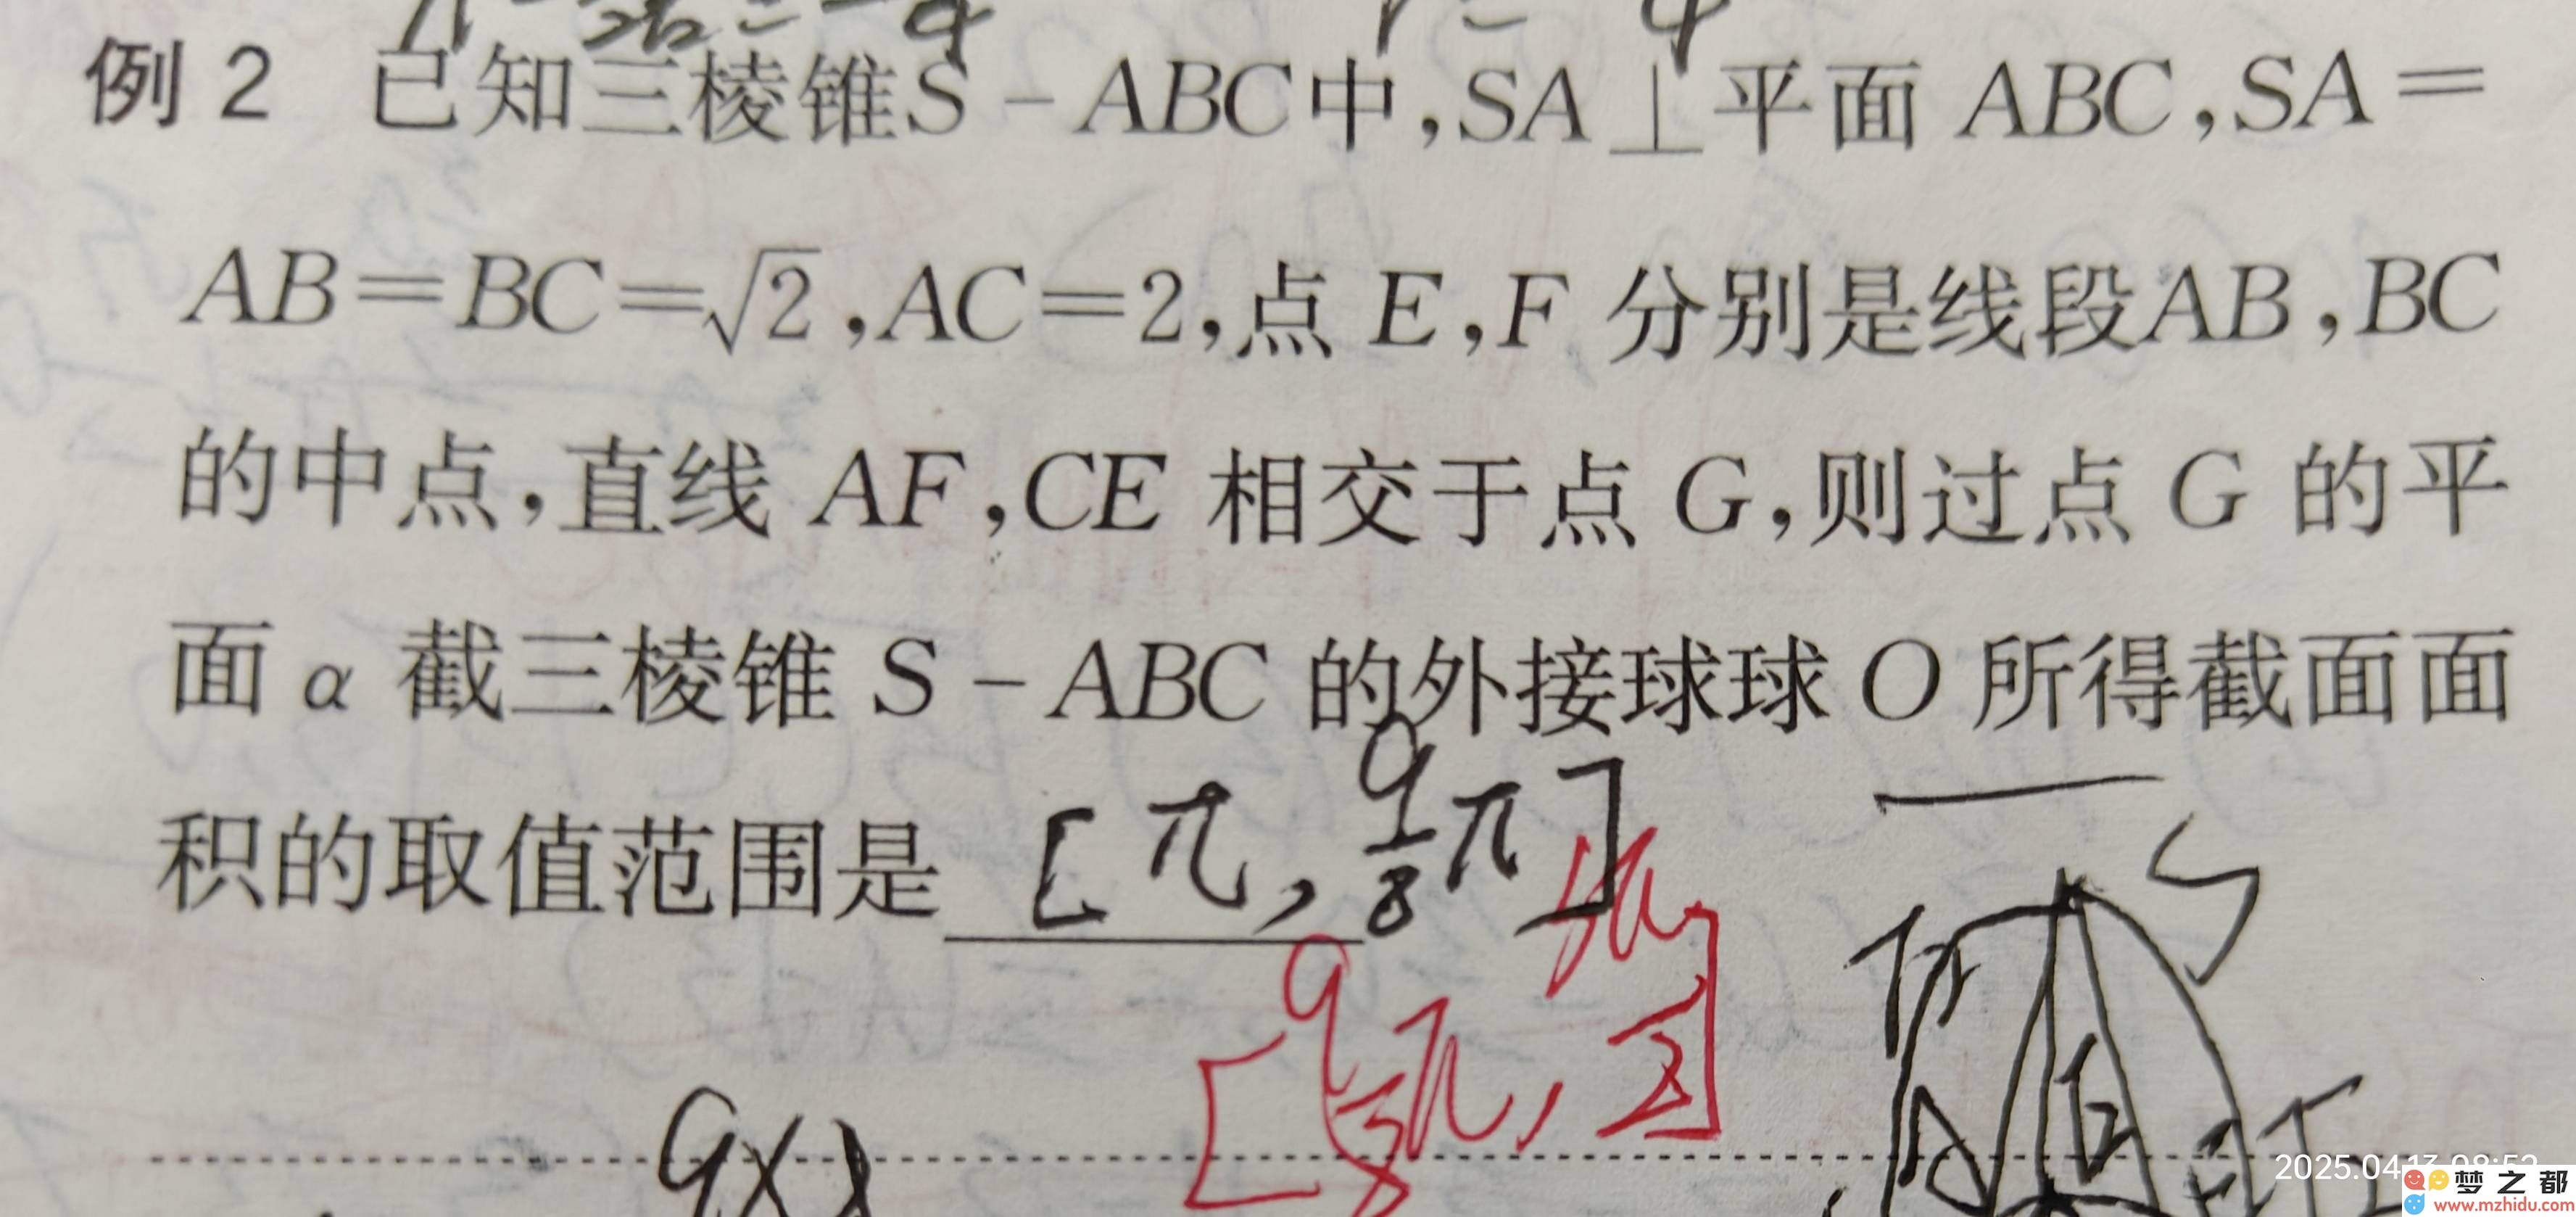 例2 已知三棱锥S-ABC中,SA⊥平面ABC,SA=
AB=BC=√2,AC=2,点E,F分别是线段AB,BC
的中点,直线AF,CE相交于点G,则过点G的平
面α截三棱锥S-ABC的外接球球O所得截面面
积的取值范围是 [π,9/8π]
S
2025.04.13
梦之都
www.mzhidu.com